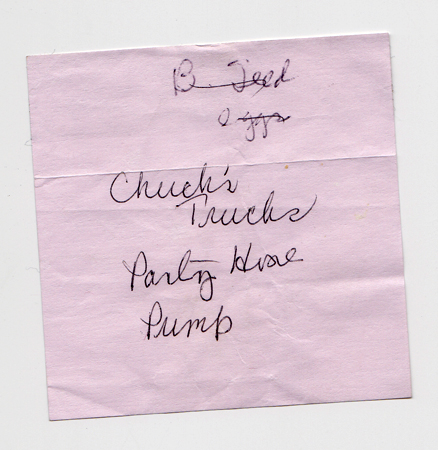 B. Seed
eggs
Chuck's
Trucks
Party Hose
Pump